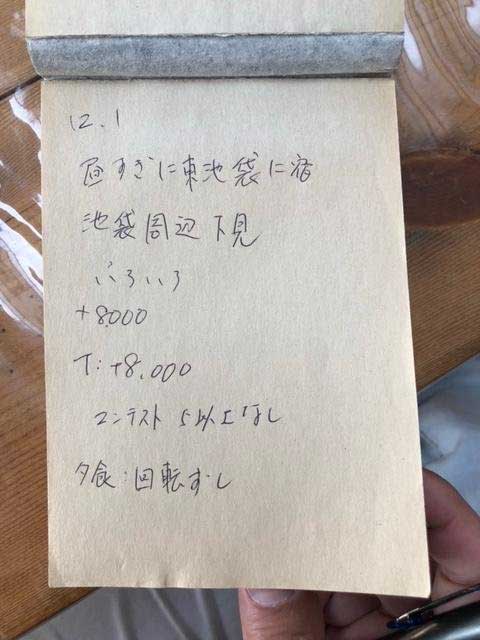 12.1
昼すぎに東池袋に宿
池袋周辺下見
いろいろ
+8000
T:+8,000
コンテスト 5以上なし
夕食:回転ずし